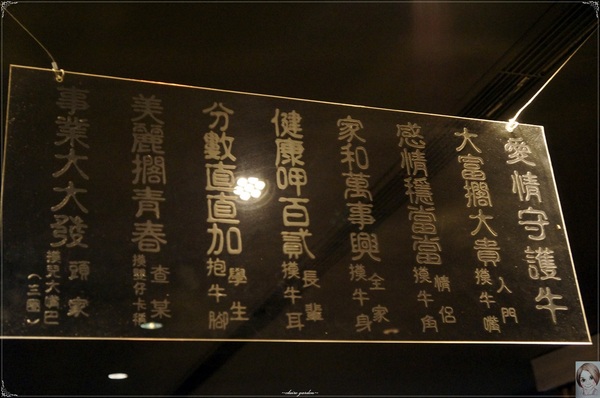 愛情守護牛
大富擱大貴 入門 摸牛嘴
感情穩當當 情侶 摸牛角
家和萬事興 全家 摸牛身
健康呷百貳 長輩 摸牛耳
分數直直加 學生 抱牛腳
美麗擱青春 查某
事業大大發 頭家 大嘴巴
(三圈)
~claire garden~